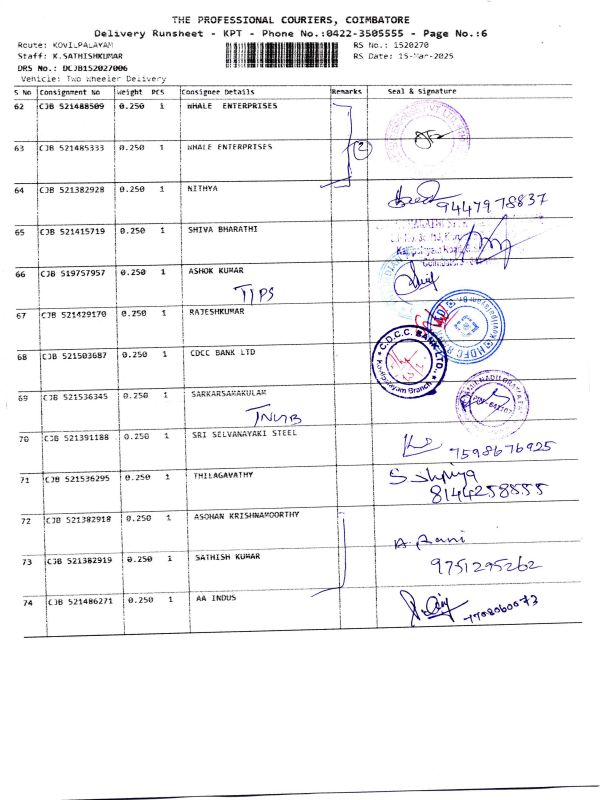 THE PROFESSIONAL COURIERS, COIMBATORE
Delivery Runsheet - KPT - Phone No.:0422-3505555 - Page No.:6
Route: KOVILPALAYAM RS No.: 1520270
Staff: K.SATHISHKUMAR RS Date: 15-Mar-2025
DRS No.: DCJB152027006
Vehicle: Two Wheeler Delivery
S No Consignment No Weight PCS Consignee Details Remarks Seal & Signature
62 CJB 521488509 0.250 1 WHALE ENTERPRISES
63 CJB 521485333 0.250 1 WHALE ENTERPRISES 2
64 CJB 521382928 0.250 1 NITHYA 9447978837
65 CJB 521415719 0.250 1 SHIVA BHARATHI
66 CJB 519757957 0.250 1 ASHOK KUMAR
TIPS
67 CJB 521429170 0.250 1 RAJESHKUMAR
68 CJB 521503687 0.250 1 CDCC BANK LTD C.D.C.C. BANK LTD., Kovilpalayam Branch
69 CJB 521536345 0.250 1 SARKARSAMAKULAM
TNUB
70 CJB 521391188 0.250 1 SRI SELVANAYAKI STEEL 7598676925
71 CJB 521536295 0.250 1 THILAGAVATHY
8144258855
72 CJB 521382918 0.250 1 ASOHAN KRISHNAMOORTHY A. Rani
73 CJB 521382919 0.250 1 SATHISH KUMAR 9751295262
74 CJB 521486271 0.250 1 AA INDUS 7708060073